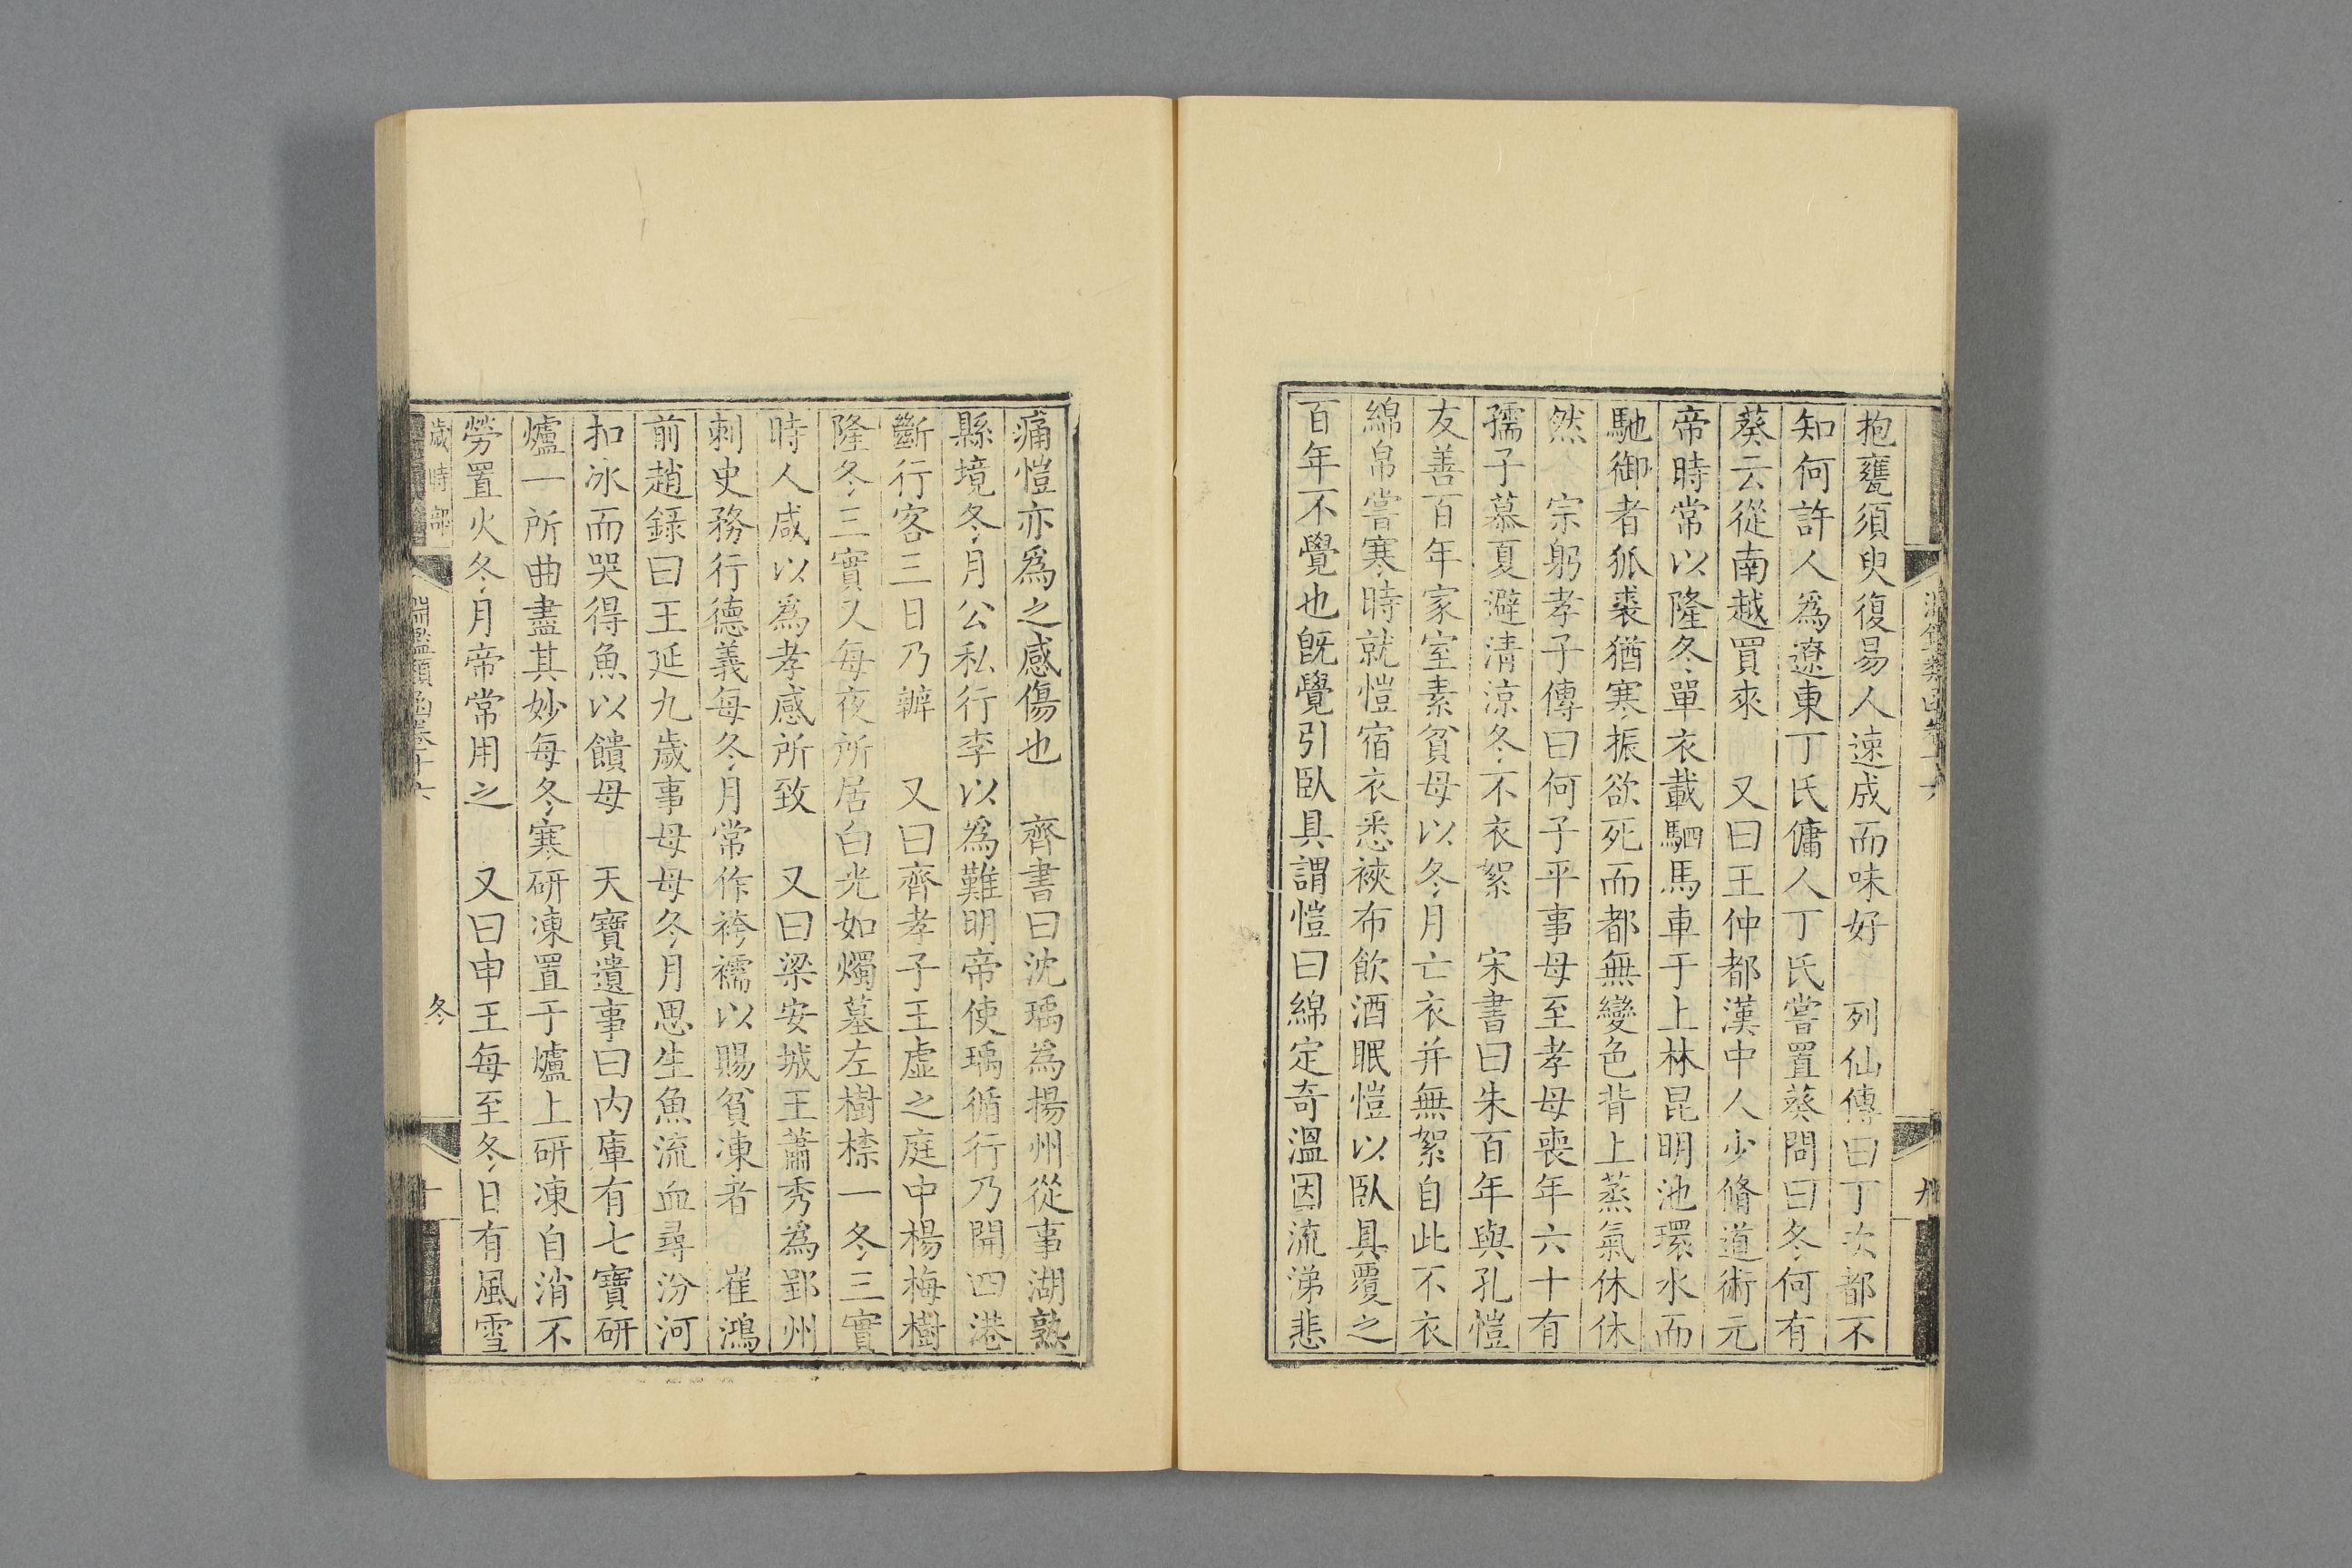 抱甕須臾復易人速成而味好　列仙傳曰丁次都不
知何許人爲遼東丁氏傭人丁氏嘗置葵問曰冬何有
葵云從南越買來　又曰王仲都漢中人少脩道術元
帝時常以隆冬單衣載駟馬車于上林昆明池環水而
馳御者狐裘猶寒振欲死而都無變色背上蒸氣休休
然　宗躬孝子傳曰何子平事母至孝母喪年六十有
孺子慕夏避清涼冬不衣絮　宋書曰朱百年與孔愷
友善百年家室素貧母以冬月亡衣并無絮自此不衣
綿帛嘗寒時就愷宿衣悉裌布飲酒眠愷以臥具覆之
百年不覺也旣覺引臥具謂愷曰綿定奇溫因流涕悲
痛愷亦爲之感傷也　齊書曰沈瑀爲揚州從事湖熟
縣境冬月公私行李以爲難明帝使瑀循行乃開四港
斷行客三日乃辦　又曰齊孝子王虛之庭中楊梅樹
隆冬三實又每夜所居白光如燭墓左樹橚一冬三實
時人咸以爲孝感所致　又曰梁安城王蕭秀爲郢州
刺史務行德義每冬月常作袴襦以賜貧凍者　崔鴻
前趙錄曰王延九歲事母母冬月思生魚流血尋汾河
扣冰而哭得魚以饋母　天寶遺事曰內庫有七寶研
爐一所曲盡其妙每冬寒研凍置于爐上研凍自消不
勞置火冬月帝常用之　又曰申王每至冬日有風雪
歲時部
淵鑑類函卷十六
冬